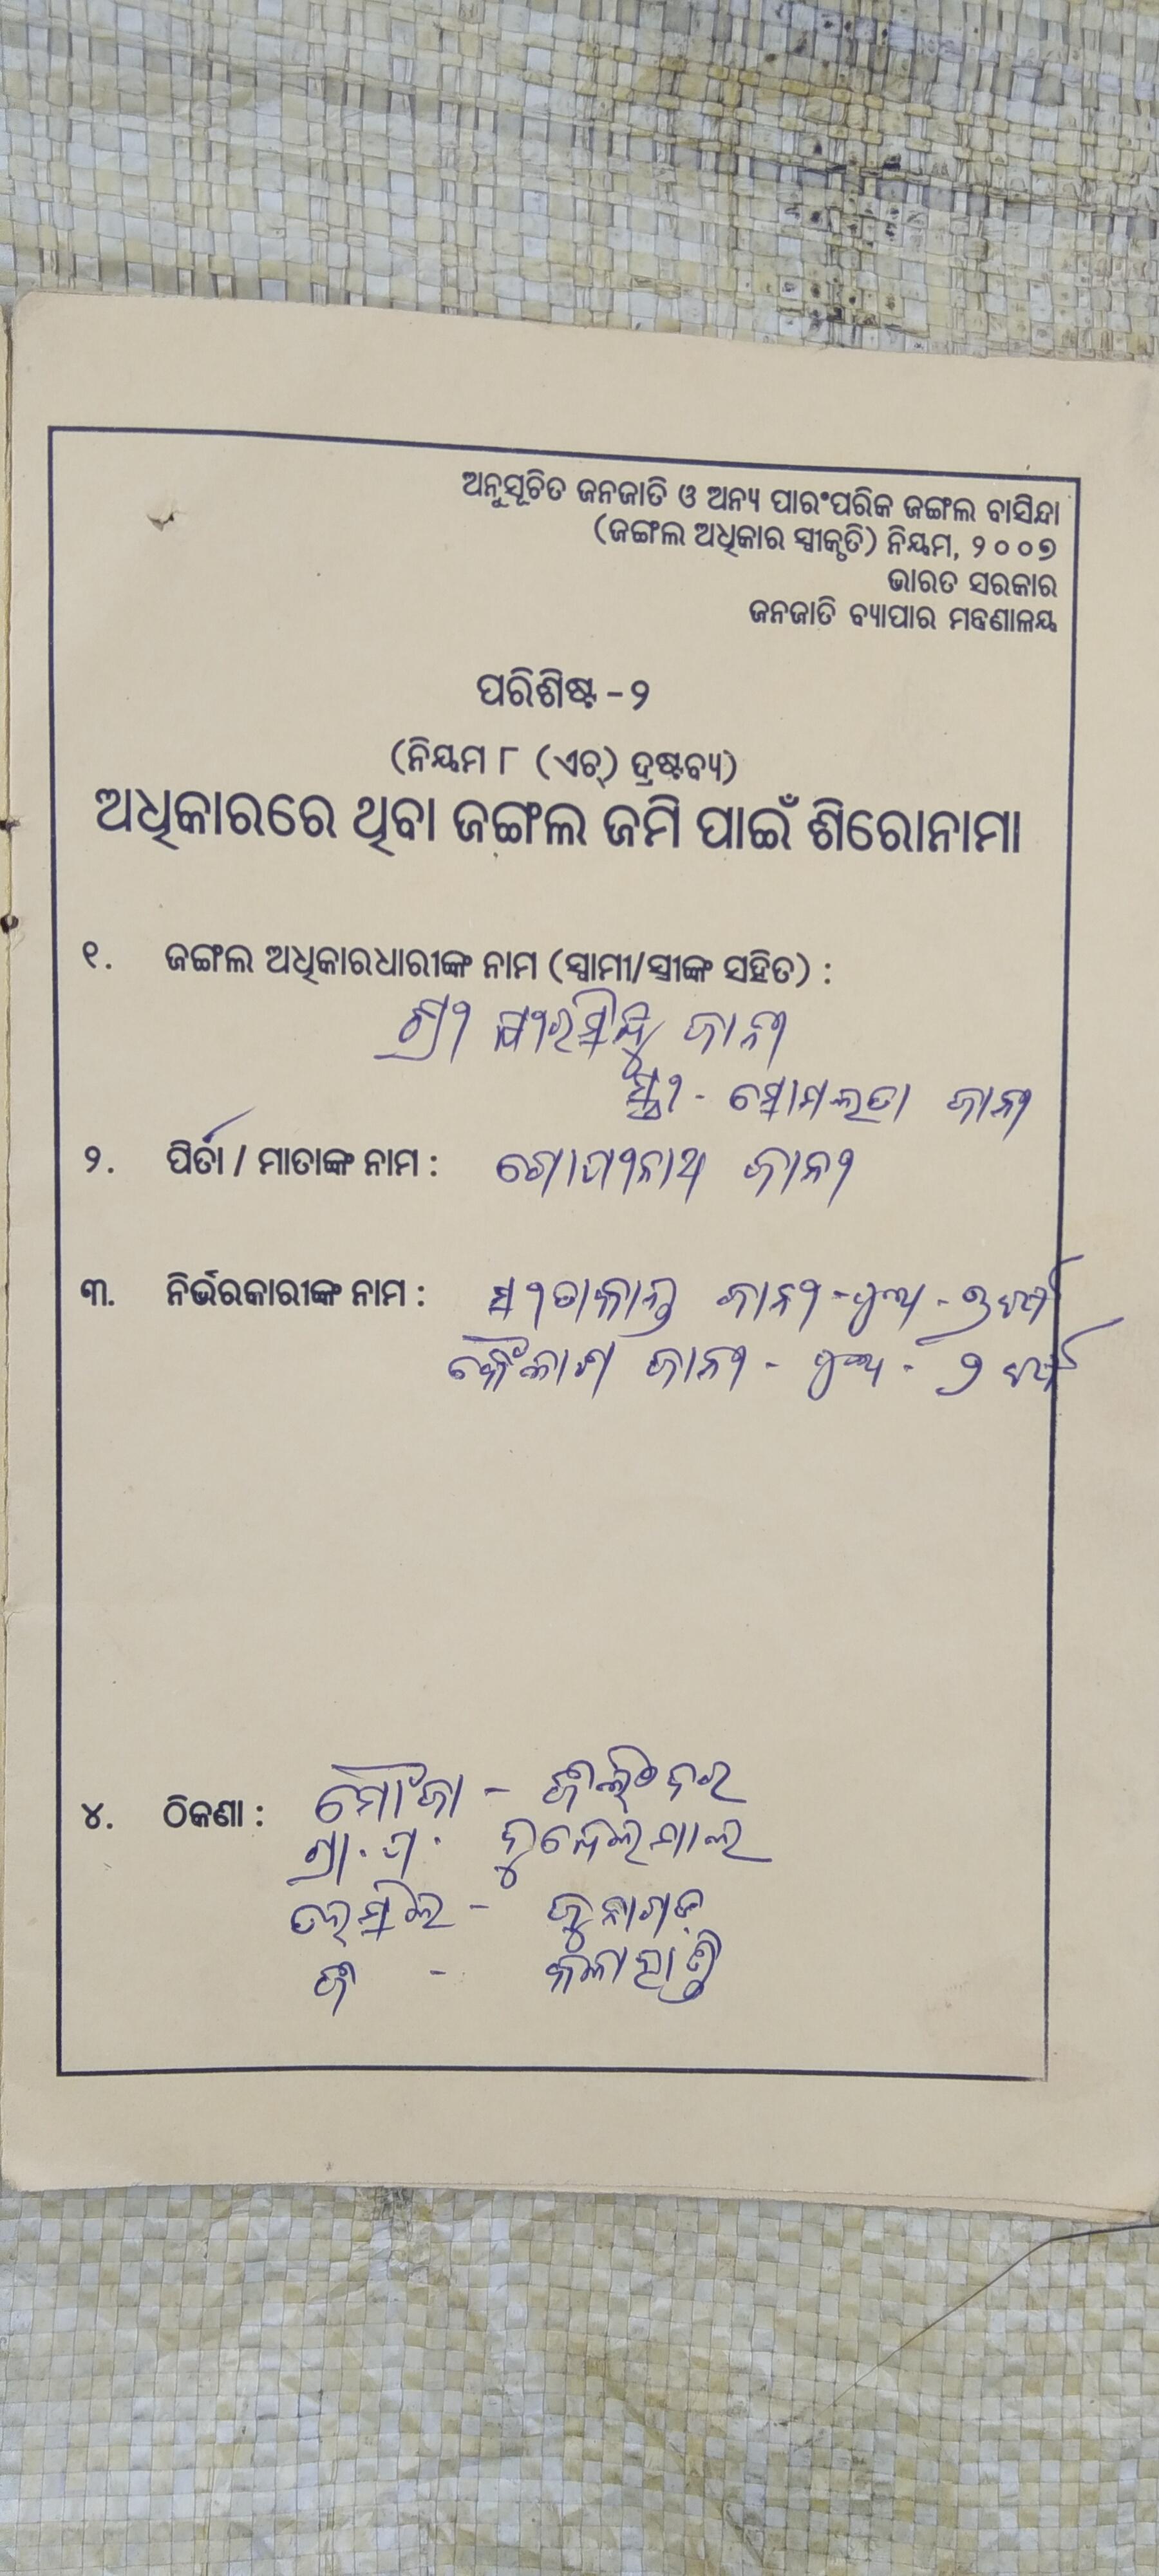 ଅନୁସୂଚିତ ଜନଜାତି ଓ ଅନ୍ୟ ପାରଂପରିକ ଜଙ୍ଗଲ ବାସିନ୍ଦା
(ଜଙ୍ଗଲ ଅଧିକାର ସ୍ୱୀକୃତି) ନିୟମ, ୨୦୦୭
ଭାରତ ସରକାର
ଜନଜାତି ବ୍ୟାପାର ମନ୍ତ୍ରଣାଳୟ
ପରିଶିଷ୍ଟ -୨
(ନିୟମ ୮ (ଏଚ୍) ଦ୍ରଷ୍ଟବ୍ୟ)
ଅଧିକାରରେ ଥିବା ଜଙ୍ଗଲ ଜମି ପାଇଁ ଶିରୋନାମା
୧. ଜଙ୍ଗଲ ଅଧିକାରଧାରୀଙ୍କ ନାମ (ସ୍ୱାମୀ/ସ୍ତ୍ରୀଙ୍କ ସହିତ) :
ଶ୍ରୀ କ୍ଷୀରସିନ୍ଧୁ ଜାନୀ
ସ୍ତ୍ରୀ - ସୋମଲତା ଜାନୀ
୨. ପିତା / ମାତାଙ୍କ ନାମ : ଗୋପୀନାଥ ଜାନୀ
୩. ନିର୍ଭରକାରୀଙ୍କ ନାମ : ସୀତାକାନ୍ତ ଜାନୀ - ପୁଅ - ବର୍ଷ
କୈଳାଶ ଜାନୀ - ପୁଅ - ବର୍ଷ
୪. ଠିକଣା : ମୌଜା -
ଗ୍ରା.ପ.
ତହସିଲ - ଜୁନାଗଡ଼
ଜି - କଳାହାଣ୍ଡି